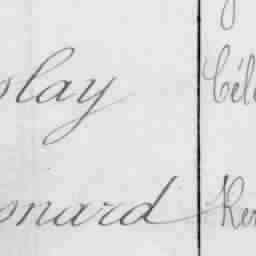 olay Céle
onard Ren